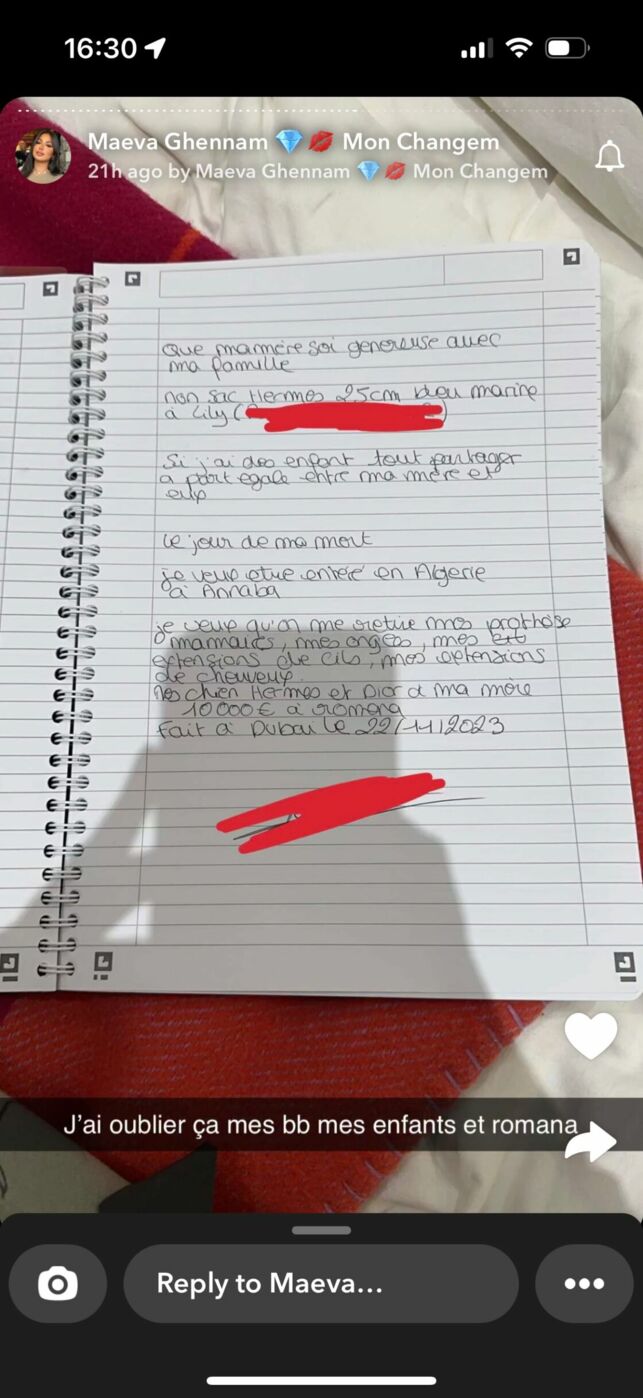 16:30
Maeva Ghennam 💎💋 Mon Changem
21h ago by Maeva Ghennam 💎💋 Mon Changem
Que mamère soi genereuse avec
ma famille
mon sac Hermes 25cm bleu marine
à Lily (
Si j'ai des enfant tout partager
a part egale entre ma mère et
eux
Le jour de ma mort
je veux etre enterée en Algerie
à Annaba
je veux qu'on me retire mes prothèse
mammaires, mes ongles, mes ext
extensions de cils, mes extensions
de cheveux.
Mes chien Hermes et Dior a ma mère
10 000€ à romana
Fait à Dubai le 22/11/2023
J'ai oublier ça mes bb mes enfants et romana
Reply to Maeva...